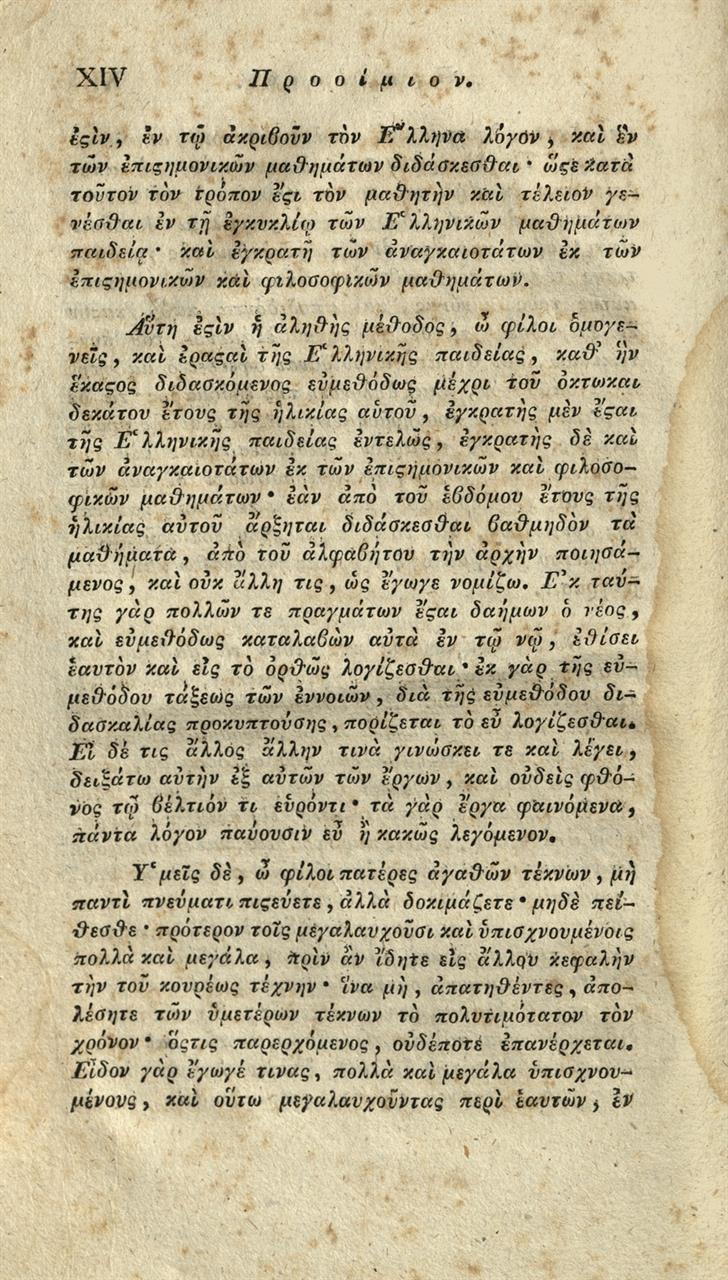 XIV Προοίμιον.
ἐϛὶν, ἐν τῷ ἀκριβοῦν τὸν Ἕλληνα λόγον, καὶ ἓν
τῶν ἐπιϛημονικῶν μαθημάτων διδάσκεσθαι· ὥϛε κατὰ
τοῦτον τὸν τρόπον ἔϛι τὸν μαθητὴν καὶ τέλειον γε-
νέσθαι ἐν τῇ ἐγκυκλίῳ τῶν Ἑλληνικῶν μαθημάτων
παιδείᾳ· καὶ ἐγκρατῆ τῶν ἀναγκαιοτάτων ἐκ τῶν
ἐπιϛημονικῶν καὶ φιλοσοφικῶν μαθημάτων.
Αὕτη ἐϛὶν ἡ ἀληθὴς μέθοδος, ὦ φίλοι ὁμογε-
νεῖς, καὶ ἐραϛαὶ τῆς Ἑλληνικῆς παιδείας, καθ' ἣν
ἕκαϛος διδασκόμενος εὐμεθόδως μέχρι τοῦ ὀκτωκαι
δεκάτου ἔτους τῆς ἡλικίας αὑτοῦ, ἐγκρατὴς μὲν ἔϛαι
τῆς Ἑλληνικῆς παιδείας ἐντελῶς, ἐγκρατὴς δὲ καὶ
τῶν ἀναγκαιοτάτων ἐκ τῶν ἐπιϛημονικῶν καὶ φιλοσο-
φικῶν μαθημάτων· ἐὰν ἀπὸ τοῦ ἑβδόμου ἔτους τῆς
ἡλικίας αὑτοῦ ἄρξηται διδάσκεσθαι βαθμηδὸν τὰ
μαθήματα, ἀπὸ τοῦ ἀλφαβήτου τὴν ἀρχὴν ποιησά-
μενος, καὶ οὐκ ἄλλη τις, ὡς ἔγωγε νομίζω. Ἐκ ταύ-
της γὰρ πολλῶν τε πραγμάτων ἔϛαι δαήμων ὁ νέος,
καὶ εὐμεθόδως καταλαβὼν αὐτὰ ἐν τῷ νῷ, ἐθίσει
ἑαυτὸν καὶ εἰς τὸ ὀρθῶς λογίζεσθαι· ἐκ γὰρ τῆς εὐ-
μεθόδου τάξεως τῶν ἐννοιῶν, διὰ τῆς εὐμεθόδου δι-
δασκαλίας προκυπτούσης, πορίζεται τὸ εὖ λογίζεσθαι.
Εἰ δέ τις ἄλλος ἄλλην τινὰ γινώσκει τε καὶ λέγει,
δειξάτω αὐτὴν ἐξ αὐτῶν τῶν ἔργων, καὶ οὐδεὶς φθό-
νος τῷ βέλτιόν τι εὑρόντι· τὰ γὰρ ἔργα φαινόμενα,
πάντα λόγον παύουσιν εὖ ἢ κακῶς λεγόμενον.
Ὑμεῖς δὲ, ὦ φίλοι πατέρες ἀγαθῶν τέκνων, μὴ
παντὶ πνεύματι πιϛεύετε, ἀλλὰ δοκιμάζετε· μηδὲ πεί-
θεσθε· πρότερον τοῖς μεγαλαυχοῦσι καὶ ὑπισχνουμένοις
πολλὰ καὶ μεγάλα, πρὶν ἂν ἴδητε εἰς ἄλλου κεφαλὴν
τὴν τοῦ κουρέως τέχνην· ἵνα μὴ, ἀπατηθέντες, ἀπο-
λέσητε τῶν ὑμετέρων τέκνων τὸ πολυτιμότατον τὸν
χρόνον· ὅϛις παρερχόμενος, οὐδέποτε ἐπανέρχεται.
Εἶδον γὰρ ἔγωγέ τινας, πολλὰ καὶ μεγάλα ὑπισχνου-
μένους, καὶ οὕτω μεγαλαυχοῦντας περὶ ἑαυτῶν, ἐν